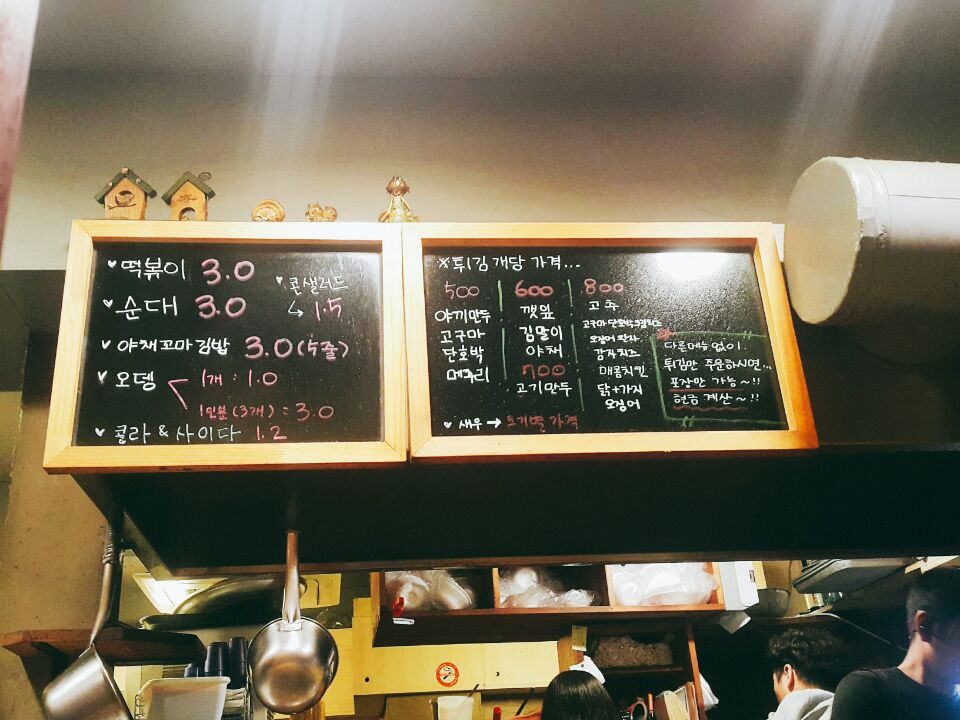 ♥떡볶이 3.0
♥콘샐러드
↳ 1.5
♥순대 3.0
♥야채꼬마김밥 3.0(5줄)
♥오뎅
1개 : 1.0
1인분(3개) : 3.0
♥콜라&사이다 1.2
※튀김 개당 가격...
500
야끼만두
고구마
단호박
메추리
600
깻잎
김말이
야채
700
고기만두
800
고추
고구마 단호박
오징어 완자
감자치즈
매콤치킨
닭+가지
오징어
♥새우→크기별 가격
다른메뉴 없이
튀김만 주문하시면...
포장만 가능~!!
현금 계산~!!